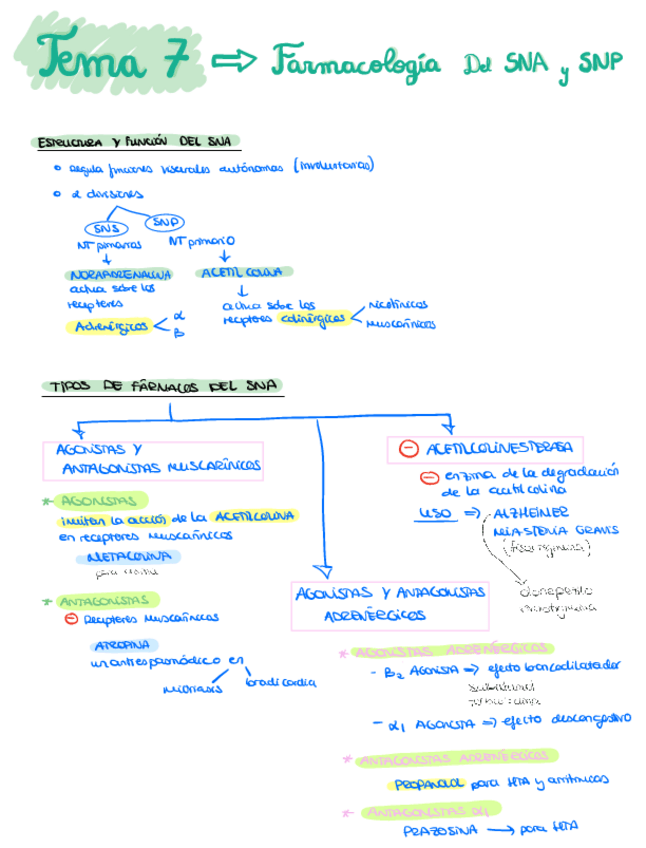 Tema 7 ⇒ Farmacología Del SNA y SNP
ESTRUCTURA Y FUNCIÓN DEL SNA
• Regula funciones viscerales autónomas (involuntarias)
• 2 divisiones
SNS
SNP
NT primarios
NT primario
↓
↓
NORADRENALINA
ACETILCOLINA
actua sobre los
receptores
Adrenérgicos
α
B
↓
actua sobre los
receptores colinérgicos
Nicotínicos
Muscarínicos
TIPOS DE FÁRMACOS DEL SNA
AGONISTAS Y
ANTAGONISTAS MUSCARÍNICOS
* AGONISTAS
imitan la acción de la ACETILCOLINA
en receptores muscarínicos
METACOLINA
para
* ANTAGONISTAS
⊖ Receptores Muscarínicos
ATROPINA
un antiespasmódico en
midriasis
bradicardia
⊖ ACETILCOLINESTERASA
⊖ enzima de la degradación
de la acetilcolina
USO ⇒ ALZHEIMER
MIASTENIA GRAVIS
donepezilo
AGONISTAS Y ANTAGONISTAS
ADRENÉRGICOS
* AGONISTAS ADRENÉRGICOS
- B2 AGONISTA ⇒ efecto broncodilatador
- α1 AGONISTA ⇒ efecto descongestivo
* ANTAGONISTAS ADRENÉRGICOS
PROPANOLOL para HTA y arritmicos
* ANTAGONISTAS α1
PRAZOSINA → para HTA